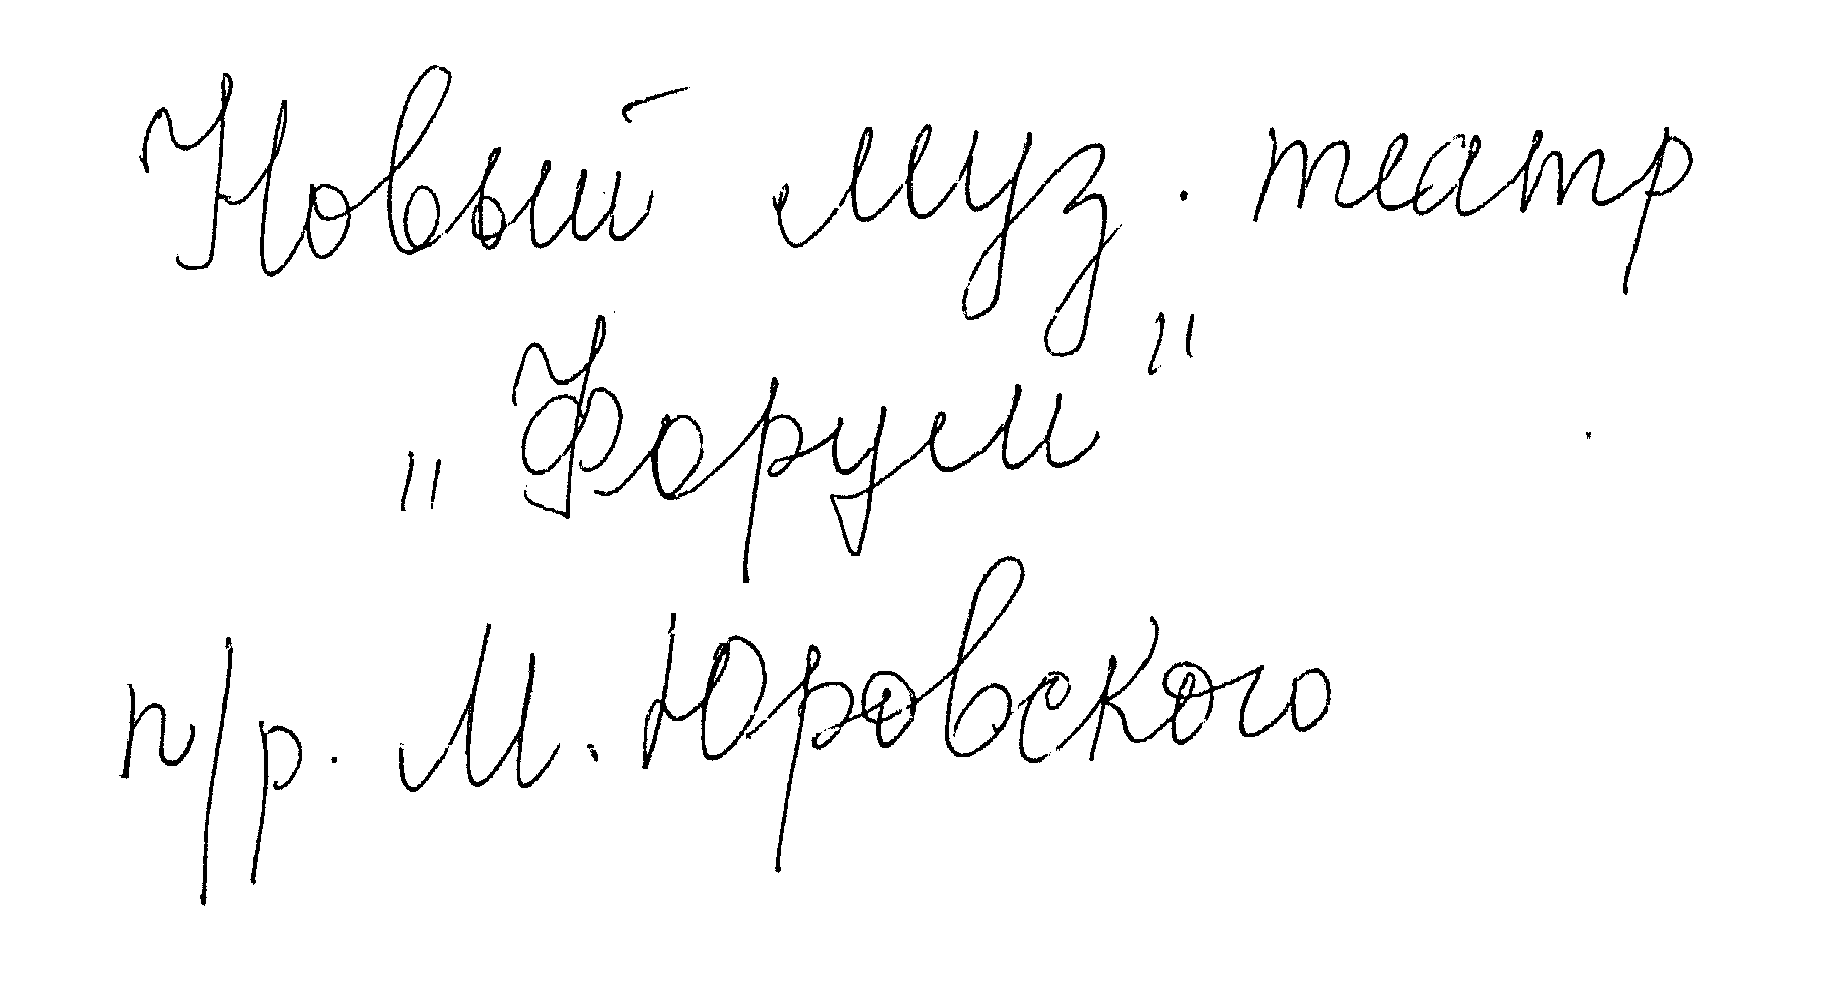 Новый муз. театр
„Форум"
п/р. М. Юровского